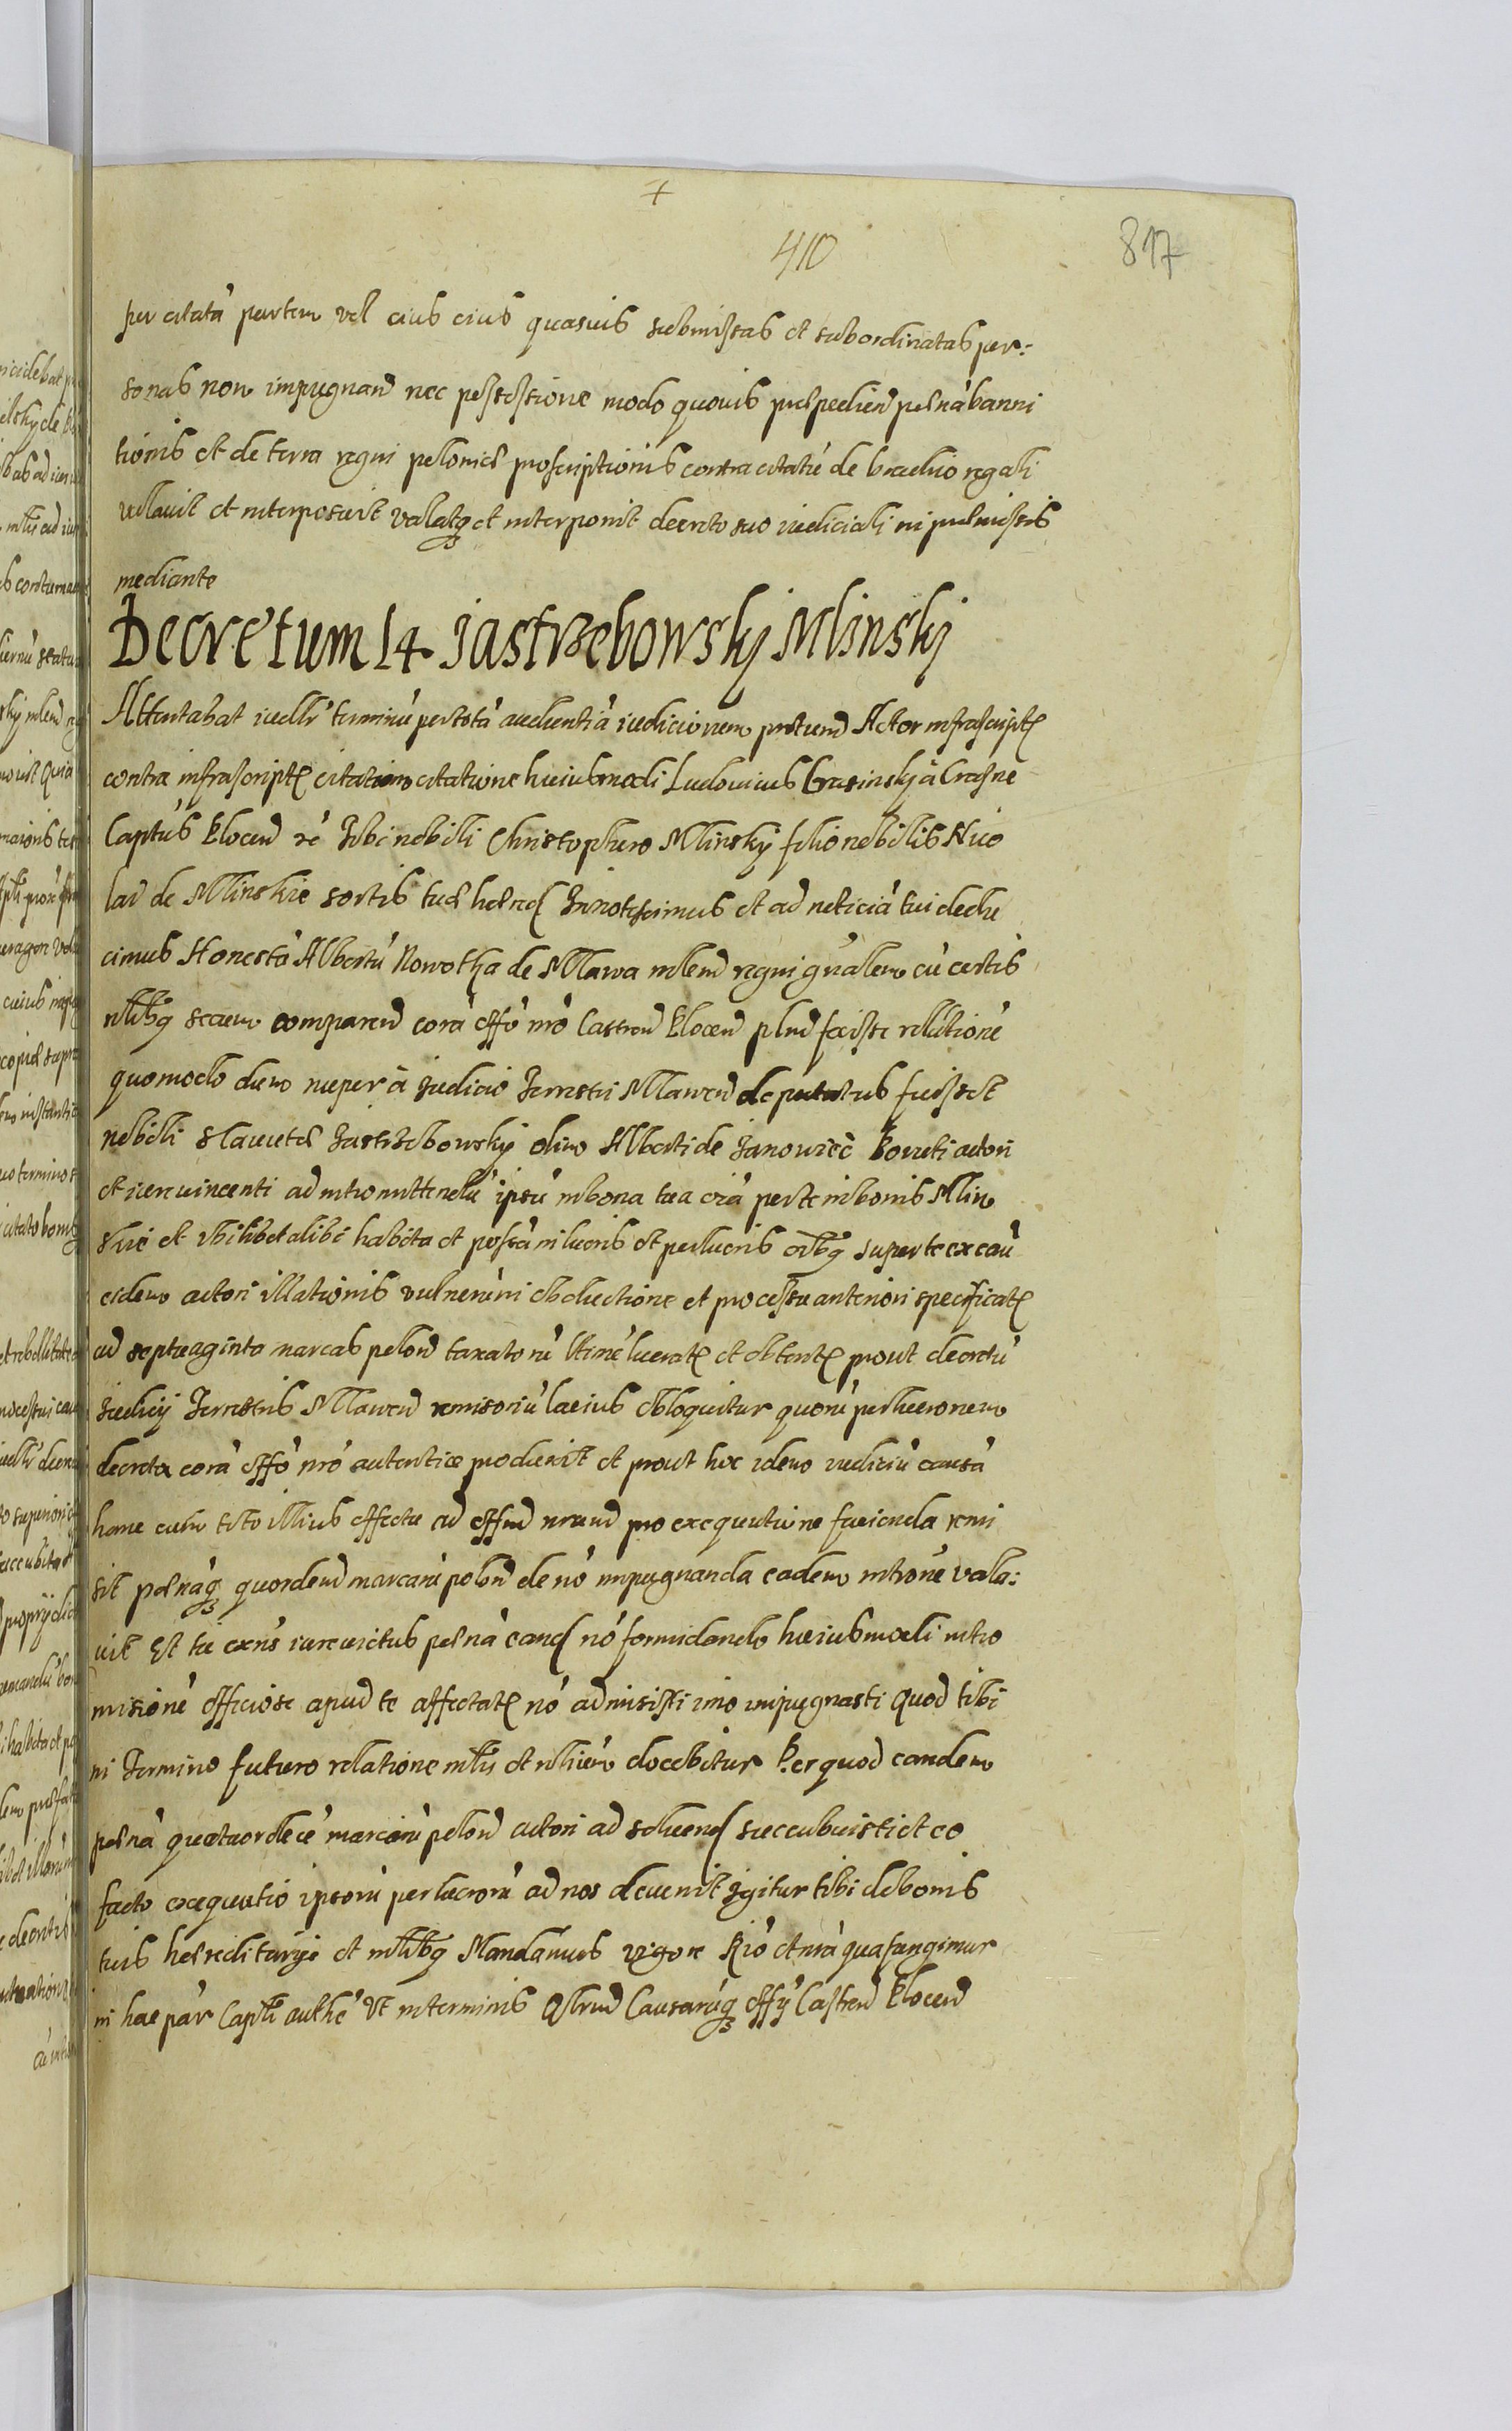 410
817
per citatā partem vel eius eius quasuis submissas et subordinatas per:
sonas non impugnand nec possessione modo quouis praepediend poenā banni
tionis et de terra regni poloniae proscriptionis contra citatū de brachio regali
vallauit et interposuit valatq et interponit decreto suo iudiciali in praemissis
mediante
Decretum 14 Jastrzebowskÿ Mlinskÿ
Attentabat iudlr terminū per totā audientiā iudiciorum protund Actor infrascript
contra infrascript citatum citatione huiusmodi Ludouicus Crasinskÿ à Crasne
Captūs Plocen rē Tibi nobili Christophero Mlinskÿ filio nobilis Nico
lai de Mlinskie sortis tuae haered Innotescimus et ad noticiā tui dedu
cimus Honestū Albertū Nowotka de Mlawa mlem regni gnālem cū certis
nlibq secum comparend corā offo nro Castren Plocen plnd fecisse relationē
quomodo dum nuper à Judicio Terrestri Mlawen deputatus fuisset
nobili Slauutae Jastrzebowskÿ olim Alberti de Janowiec Boruti actori
et iureuincenti ad intromittendū ipsū in bona tua oīa per te in bonis Mlin
skie et vbilibet alibi habita et possā in lucris et perlucris oībq super te ex cau
eidem actori illationis vulnerū in obductione et processu anteriori specificat
ad septuaginta marcas polon taxatorū Utīnē lucrat et obtent prout decretū
Judicij Terrestris Mlawen remissoriū latius obloquitur quorū perlucrorum
decreta corā offo nro autentice produxit et prout hoc idem iudiciū causā
hanc cum toto illius effectu ad offm nrum pro exequutione facienda remi
sit poenāq quordecim marcarū polon de nō impugnanda eadem introne vala:
uit Et tu exns iureuictus poenā eand nō formidando huiusmodi intro
missionē officiose apud te affectat nō admisisti imo impugnasti Quod tibi
in Termino futuro relatione mlis et nlium docebitur Per quod eandem
poenā quatuordecē marcarū polon actori ad soluend succubuisti et eo
facto exequutio ipsorū perlucrorū ad nos deuenit Igitur tibi de bonis
tuis haereditarijs et mlibq Mandamus vigore Rio et nrā qua fungimur
in hac pār Captli authē Vt in terminis Qbrund Causarūq offÿ Castren Plocen